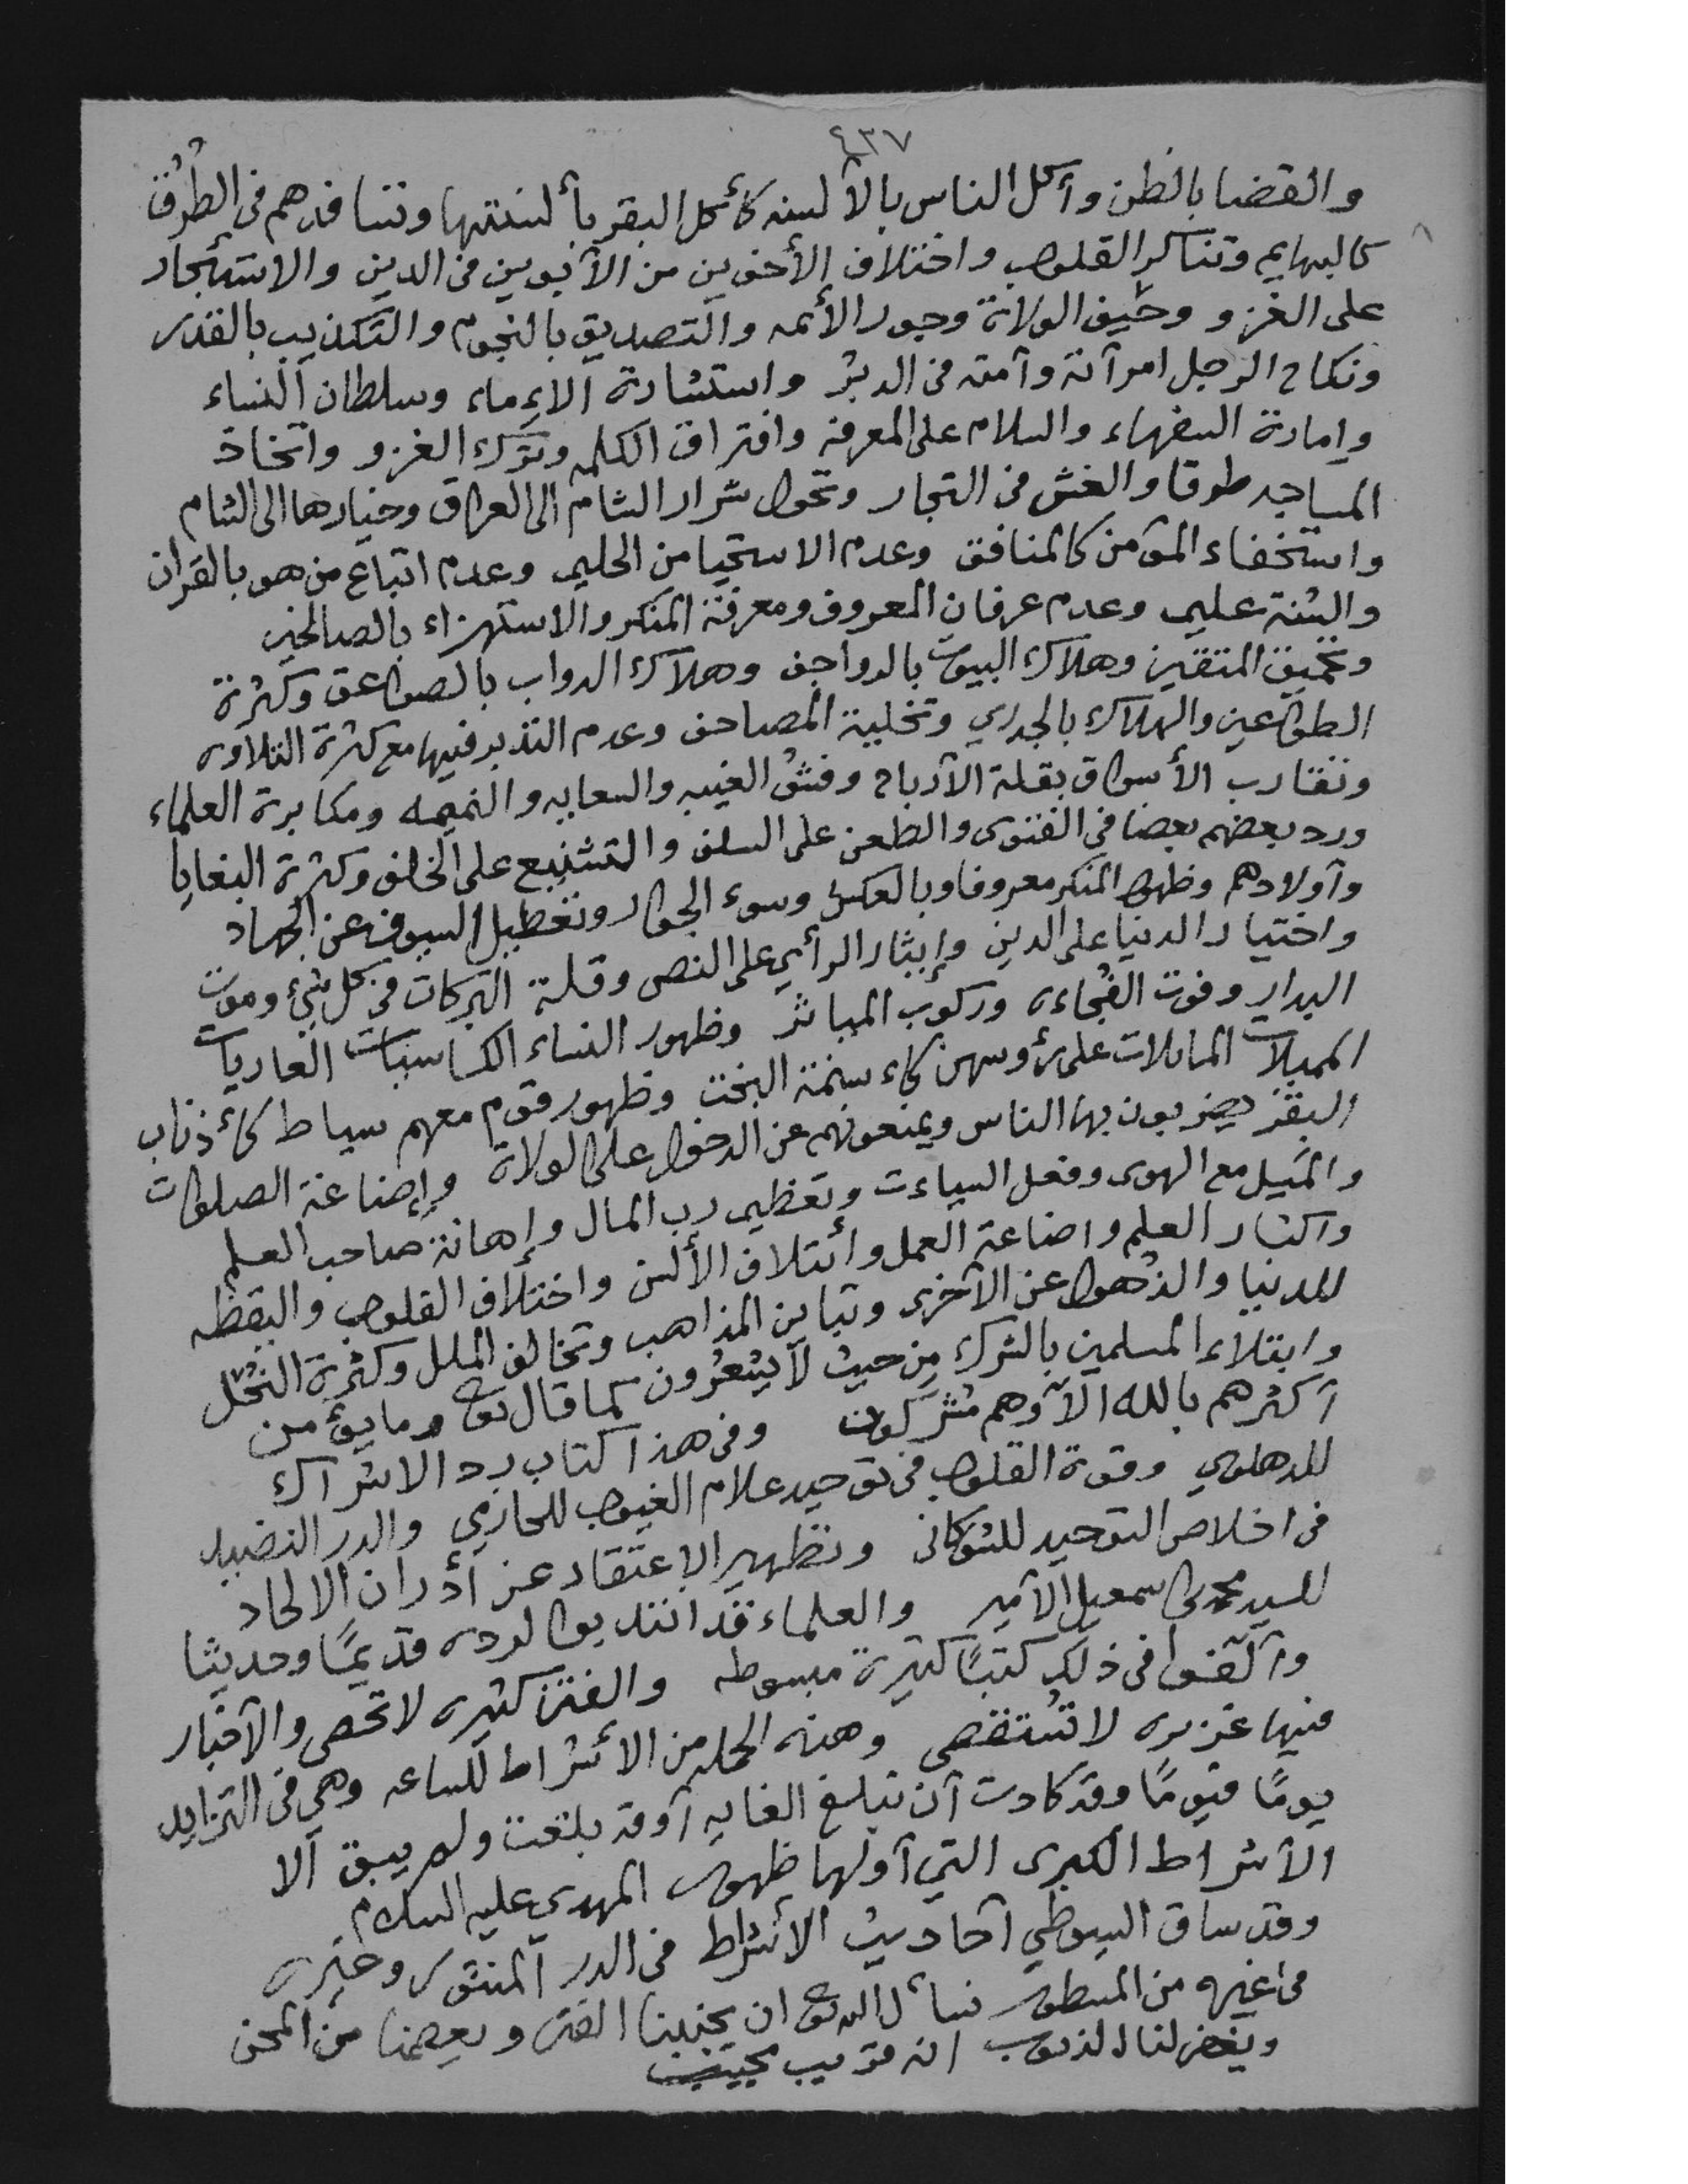 ٤٣٧
والقضا بالظن وآكل الناس بالآلسنه كأكل البقر بألسنتها وتسافدهم فى الطُرُق
كالبهايم وتناكر القلوب واختلاف الأخوين من الآبوين فى الدين والاستئجار
على الغزو وحَيف الولاة وجور الأئمه والتصديق بالنجوم والتكذيب بالقدر
ونكاح الرجل امرآته وآمته فى الدبُر واستشارة الاِماء وسلطان النساء
وإمارة السفهاء والسلام على المعرفه وافتراق الكلمه وترك الغزو واتخاذ
المساجد طوقا والغش فى التجار وتحول شرار الشام الى العراق وخيارها الى الشام
واستخفاء المؤمن كالمنافق وعدم الاستحيا من الحليم وعدم اتباع من هو بالقرآن
والسُنة عليم وعدم عرفان المعروف ومعرفة المنكر والاستهزاء بالصالحين
وتحميق المتقين وهلاك البيوت بالرواجف وهلاك الدواب بالصواعق وكثرة
الطواعين والهلاك بالجدري وتحلية المصاحف وعدم التدبر فيها مع كثرة التلاوه
وتقارب الأسواق بقلة الآرباح وفشُو الغيبه والسعايه والنميمه ومكابرة العلماء
ورد بعضهم بعضا فى الفتوى والطعن على السلف والتشنيع على الخلف وكثرة البغايا
وآولادهم وظهور المنكر معروفا وبالعكس وسوء الجوار وتعطيل السيوف عن الجهاد
واختيار الدنيا على الدين وإيثار الرأي على النصى وقلة البركات فى كل شيء وموت
البدار وفوت الفُجاءه وركوب المياثر وظهور النساء الكاسيات العاريات
المميلات المايلات على رؤوسهن كاءسنمة البخت وظهور قوم معهم سياط كأذناب
البقر يضربون بها الناس ويمنعونهم عن الدخول على الولاة وإضاعة الصلوات
والمَيل مع الهوى وفعل السياءت وتعظيم رب المال وإهانة صاحب العلم
واكثار العلم واضاعة العمل وأئتلاف الألسن واختلاف القلوب واليقظه
للدنيا والذُهول عن الآخرى وتباين المذاهب وتخالف الملل وكثرة النُحَل
وابتلاء المسلمين بالشرك مِن حيث لآ يشعُرون كما قال تع وما يؤمن
آكثرهم بالله الاّ وهم مُشركون وفى هذا كتاب رد الاشراك
للدهلوي وقوة القلوب فى توحيد علام الغيوب للحازمي والدر النضيد
فى اخلاص التوحيد للشوكانى وتطهير الاعتقاد عن آدران الالحاد
للسيد محمد بن اسمعيل الآمير والعلماء قد انتدبوا لرده قديمًا وحديثا
وآلّفوا فى ذلك كتبًا كثيرة مبسوطه والفتن كثيره لا تحصى والآخبار
فيها غزيره لا تُستقصى وهذه الجمله من الأشراط للساعه وهي فى التزايد
يومًا فيومًا وقد كادت آن تبلغ الغايه آو قد بلغت ولم يبق الا
الآشراط الكبرى التي آولها ظهور المهدي عليه السلام
وقد ساق السيوطي آحاديث الأشراط فى الدر المنثور وغيره
فى غيره من المسطور نسأل الله تع ان يجنبنا الفتن ويعصمنا من المحن
ويغفر لنا الذنوب انه قريب مجيب